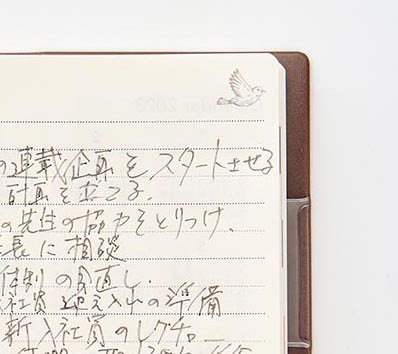 の連載企画をスタートさせる
計画を立てる.
の先生の協力をとりつけ.
長に相談
体制の見直し.
社員迎え入れの準備
新入社員のレクチ